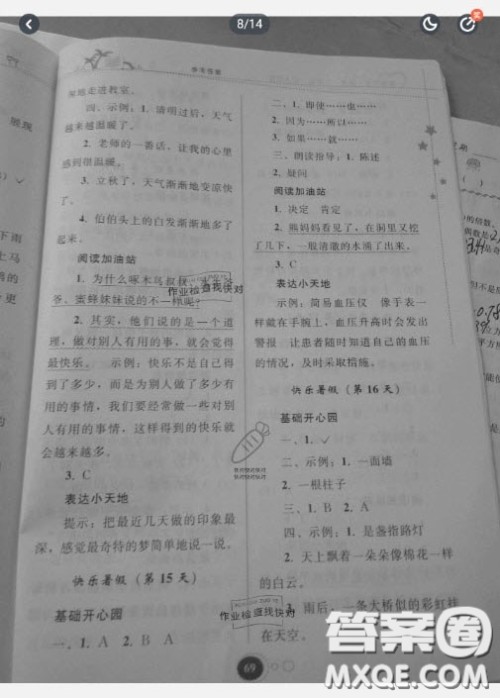 8/14
参考答案
地走进教室。
四、示例：1. 清明过后，天气
越来越温暖了。
2. 老师的一番话，让我的心里
感到很温暖。
3. 立秋了，天气渐渐地变凉快
了。
4. 伯伯头上的白发渐渐地多了
起来。
阅读加油站
1. 为什么啄木鸟叔叔、
爷、蜜蜂妹妹说的不一样呢？
2. 其实，他们说的是一个道
理，做对别人有用的事，就会觉得
最快乐。 示例：快乐不是自己得
到了多少，而是为别人做了多少有
用的事情，我们要经常做一些对别
人有用的事情，这样得到的快乐就
会越来越多。
3. C
表达小天地
提示：把最近几天做的印象最
深，感觉最奇特的梦简单地说一说。
快乐暑假（第15天）
基础开心园
一、1. A 2. B A
二、1. 即使……也……
2. 因为……所以……
3. 如果……就……
三、朗读指导：1. 陈述
2. 疑问
阅读加油站
1. 决定 肯定
2. 熊妈妈看见了，在洞里又挖
了几下，一股清澈的水涌了出来。
3. C
表达小天地
示例：简易血压仪 像手表一
样戴在手腕上，血压升高时会发出
警报 让患者随时知道自己的血压
的情况，及时采取措施。
快乐暑假（第16天）
基础开心园
一、1. ✓
二、示例：1. 一面墙
2. 一根柱子
三、1. B B A
四、示例：1. 是盏指路灯
2. 天上飘着一朵朵像棉花一样
的白云。
3. 雨后，一条大桥似的彩虹挂
在天空。
69
作业检查找快对
作业检查找快对
答案圈
MXQE.COM